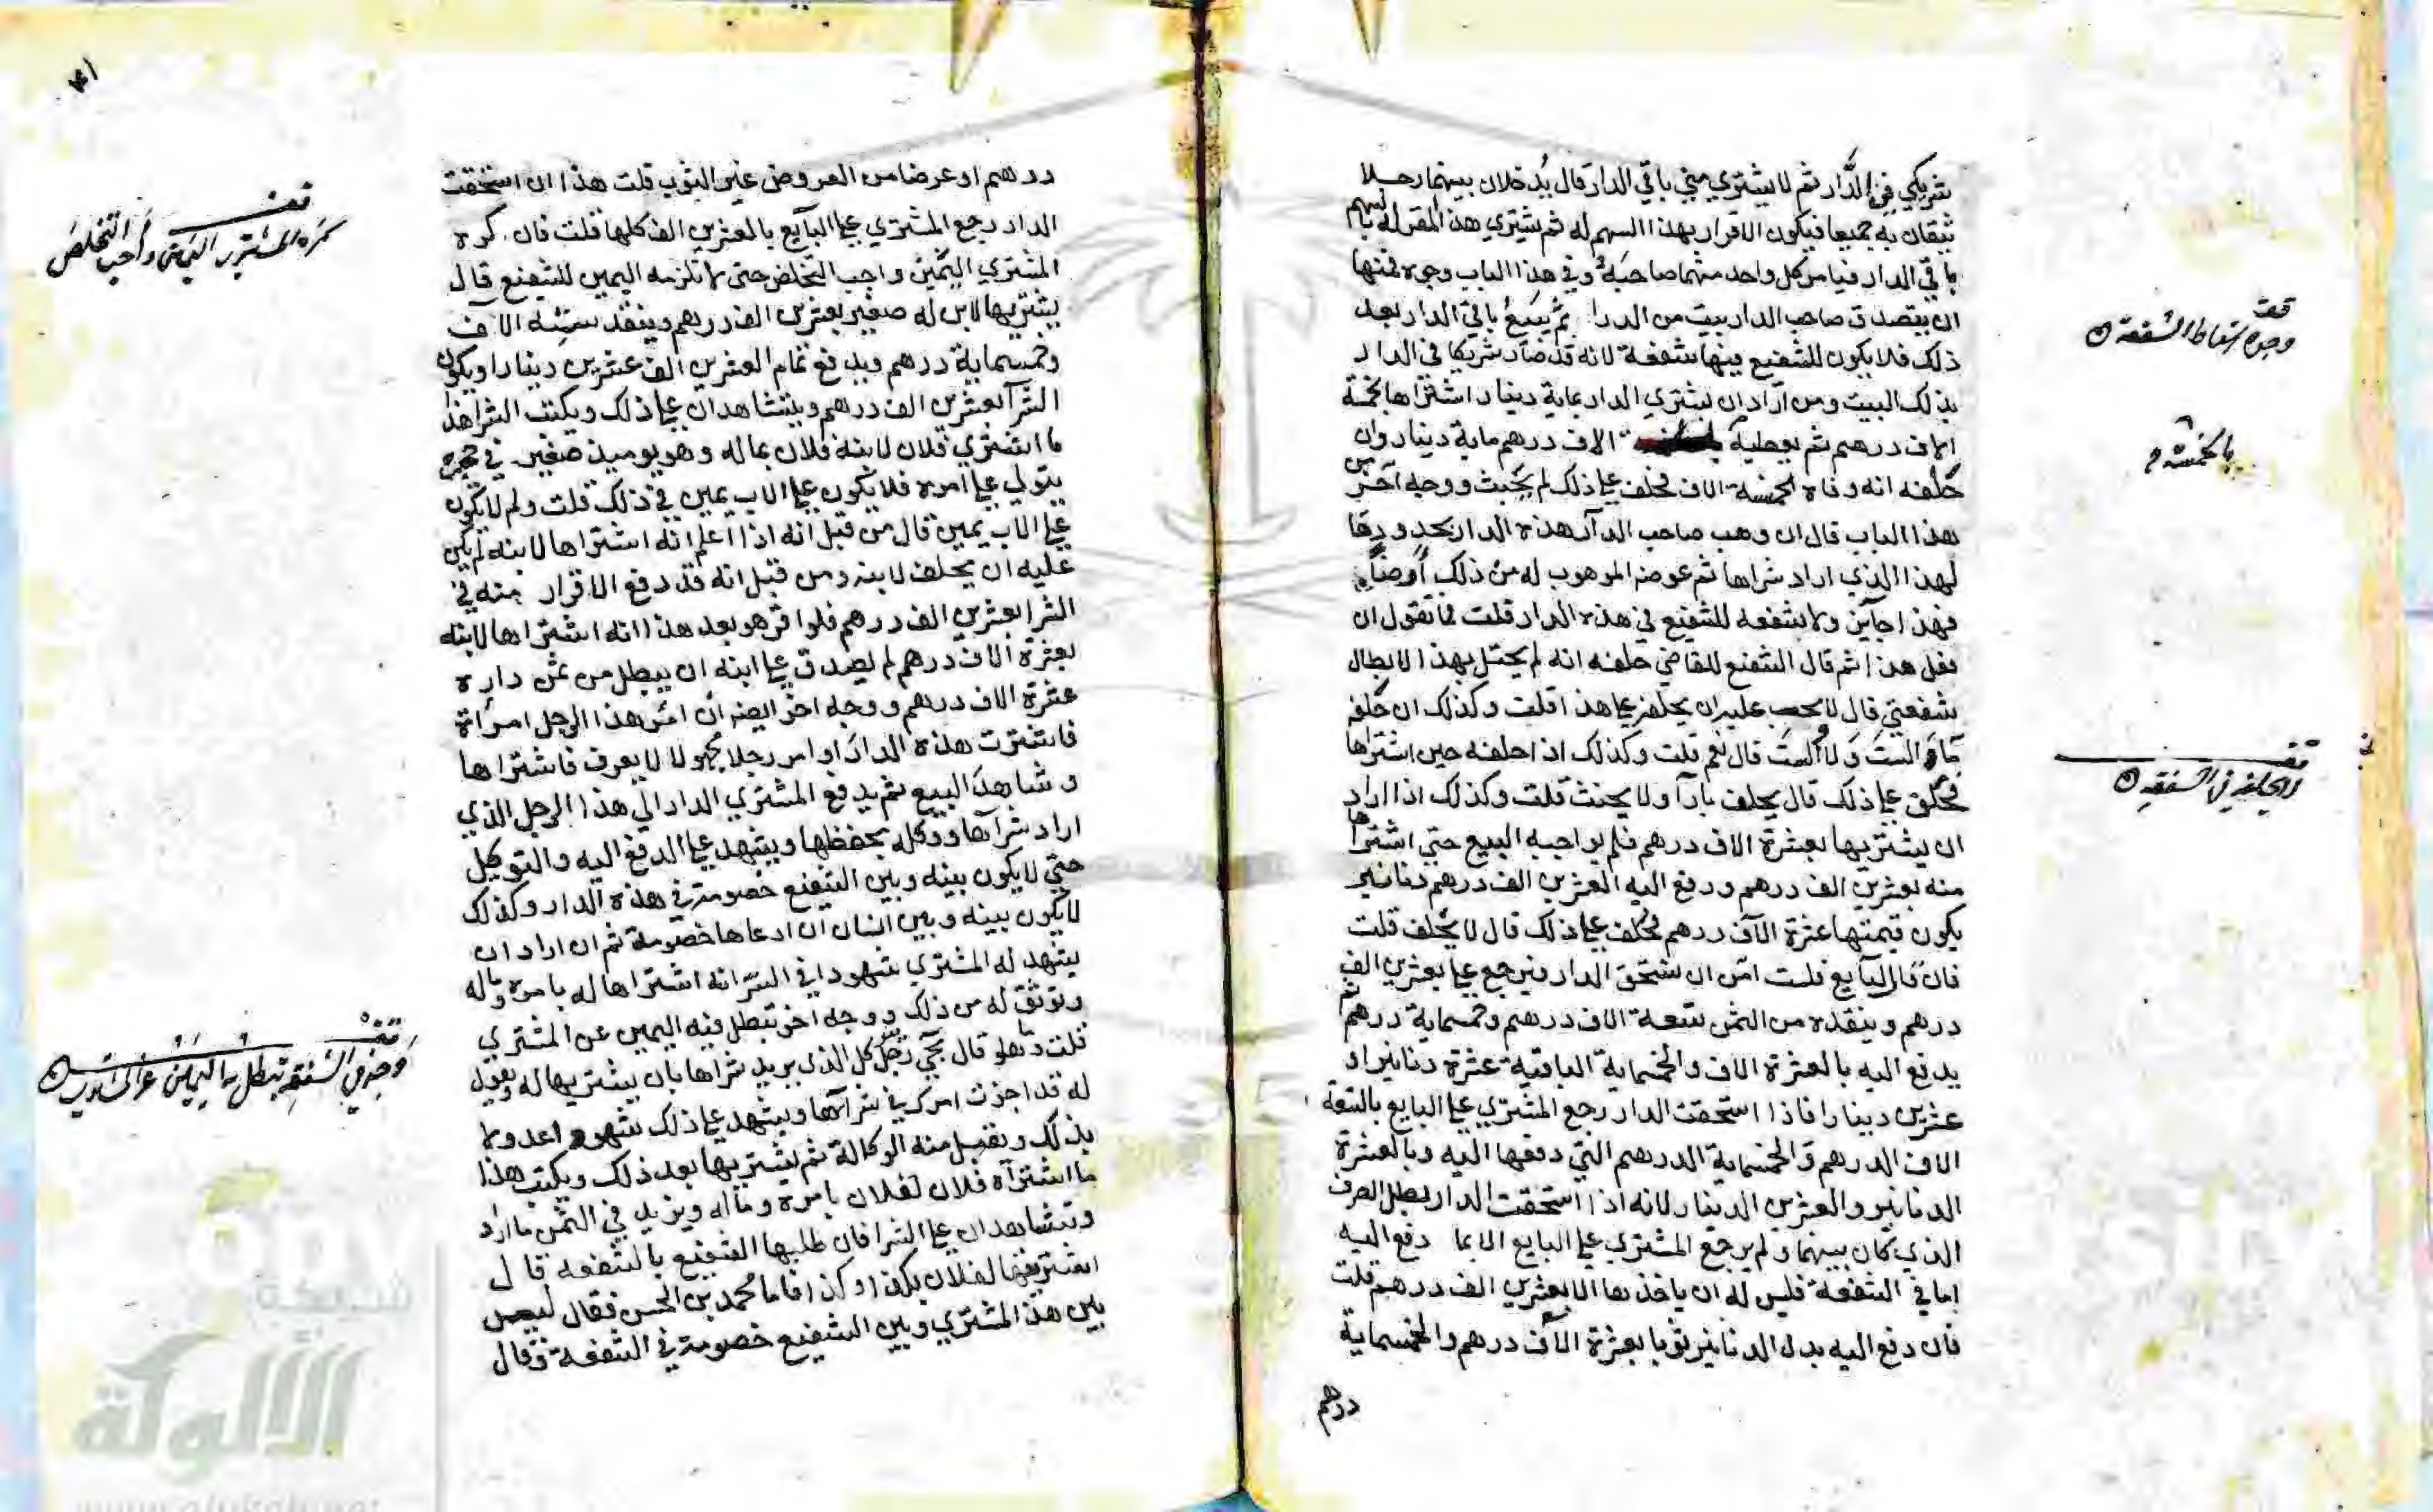 شريكي في الدار ثم لا يشتري مني باقي الدار قال يدخلان بينهما رجلا
يثقان به جميعا فيكون الاقرار بهذا السهم له ثم يشتري هذا المقر له بالسهم
باقي الدار فيامن كل واحد منهما صاحبه وفي هذا الباب وجوه فمنها
ان يتصدق صاحب الدار ببيت من الدار ثم يبيع باقي الدار بعد
ذلك فلا يكون للشفيع فيها شفعة لانه قد صار شريكا في الدار
بذلك البيت ومن اراد ان يشتري الدار بماية دينار اشتراها بخمسة
الاف درهم ثم يعطيه الاف درهم ماية دينار وان
حلفه انه وفاه الخمسة الاف فحلف على ذلك لم يحنث ووجه آخر من
هذا الباب قال ان وهب صاحب الدار هذه الدار بحدودها
لهذا الذي اراد شراها ثم عوضه الموهوب له من ذلك
فهذا جايز ولا شفعه للشفيع في هذه الدار قلت فما تقول ان
فعل هذا ثم قال الشفيع للقاضي حلفه انه لم يحتل بهذا لابطال
شفعتي قال لا يجب عليه ان يحلف على هذا قلت وكذلك ان حلفه
ما والست ولا السبت قال نعم قلت وكذلك اذا حلفه حين اشتراها
فحلف على ذلك قال يحلف بارا ولا يحنث قلت وكذلك اذا اراد
ان يشتريها بعشرة الاف درهم فلم يواجبه البيع حتى اشتراها
منه بعشرين الف درهم ودفع اليه العشرين الف درهم دنانير
يكون قيمتها عشرة الاف درهم فحلف على ذلك قال لا يحلف قلت
فان قال البايع فلست امن ان تستحق الدار فيرجع علي بعشرين الف
درهم وينقده من الثمن تسعة الاف درهم وخمسماية درهم ثم
يدفع اليه بالعشرة الاف والخمسماية الباقية عشرة دنانير او
عشرين دينارا فاذا استحقت الدار رجع المشتري على البايع بالتسعة
الاف الدرهم والخمسماية الدرهم التي دفعها اليه وبالعشرة
الدنانير والعشرين الدينار لانه اذا استحقت الدار بطل الصرف
الذي كان بينهما ولم يرجع المشتري على البايع الا بما دفع اليه
اما في الشفعة فليس له ان ياخذها الا بعشرين الف درهم قلت
فان دفع اليه بدل الدنانير ثوبا بعشرة الاف درهم والخمسماية
درهم
قف
وجوه اسقاط الشفعة
بالخمسة
قف
الحلف في الشفعة
١٤١
درهم او عرضا من العروض غير الثوب قلت هذا ان استحقت
الدار رجع المشتري على البايع بالعشرين الف كلها قلت فان كره
المشتري اليمين واحب التخلص حتى لا تلزمه اليمين للشفيع قال
يشتريها لابن له صغير بعشرين الف درهم وينقد ستة الاف
وخمسماية درهم ويدفع تمام العشرين الف عشرين دينارا ويكون
الشرآ بعشرين الف درهم ويتشاهدان على ذلك ويكتب الشرا هذا
ما اشترى فلان لابنه فلان بماله وهو يوميذ صغير في حجره
يتولى على امره فلا يكون على الاب يمين في ذلك قلت ولم لا يكون
على الاب يمين قال من قبل انه اذا اعلم انه اشتراها لابنه لم يكن
عليه ان يحلف لابنه ومن قبل انه قد دفع الاقرار منه في
الشرا بعشرين الف درهم فلو اقر هو بعد هذا انه اشتراها لابنه
بعشرة الاف درهم لم يصدق على ابنه ان يبطل من ثمن داره
عشرة الاف درهم ووجه اخر ايضه ان امر هذا الرجل امرأة
فاشترت هذه الدار او امر رجلا مجهولا لا يعرف فاشتراها
وشاهد البيع ثم يدفع المشتري الدار الى هذا الرجل الذي
اراد شرآها ووكله بحفظها ويشهد على الدفع اليه والتوكيل
حتى لا يكون بينه وبين الشفيع خصومة في هذه الدار وكذلك
لا يكون بينه وبين انسان ان ادعاها خصومة ثم ان اراد ان
يشهد له المشتري شهودا في السر انه اشتراها له بامره وماله
وتوثق له من ذلك ووجه اخر تبطل فيه اليمين عن المشتري
قلت وما هو قال يجي رجل كل الذي يريد شراها بان يشتريها له ويقول
له قد اجزت امرك في شرآها ويشهد على ذلك شهودا عدولا
بذلك ويقبل منه الوكالة ثم يشتريها بعد ذلك ويكتب هذا
ما اشتراه فلان لفلان بامره وماله ويزيد في الثمن ما اراد
ويتشاهدان على الشرا فان طلبها الشفيع بالشفعه قال
اشتريتها لفلان بكذا وكذا فاما محمد بن الحسن فقال ليس
بين هذا المشتري وبين الشفيع خصومة في الشفعة وقال
قف
كره المشتري اليمين وأحب التخلص
قف
وجه في الشفعة تبطل به اليمين عن المشتري
شبكة
الألوكة
www.alukah.net